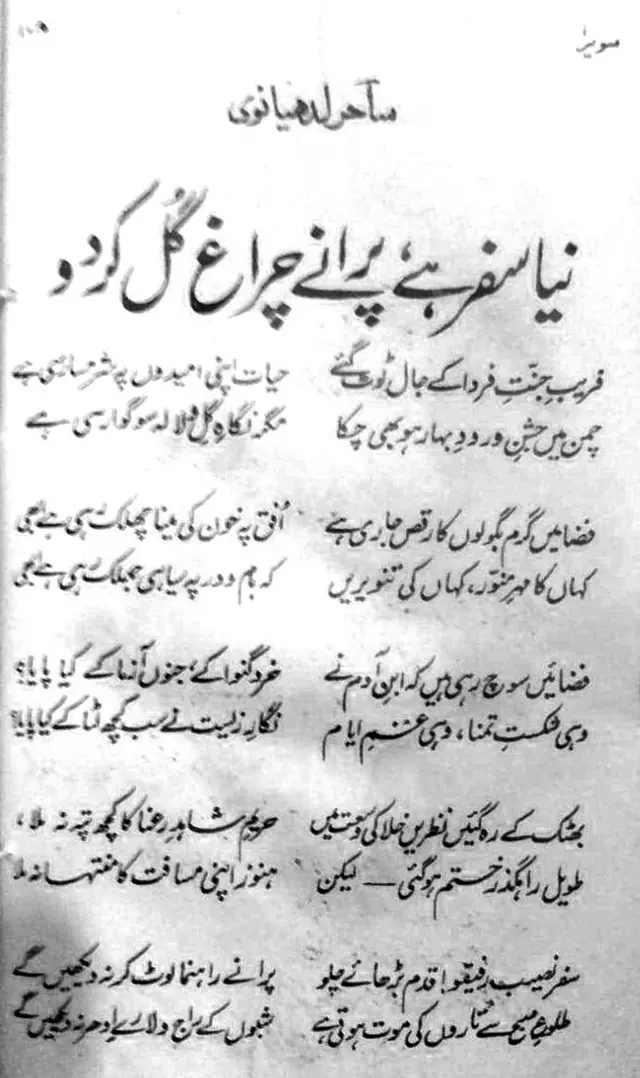 سویرا
ساحر لدھیانوی
نیا سفر ہے، پرانے چراغ گُل کر دو
فریبِ جنّتِ فردا کے جال ٹوٹ گئے حیات اپنی امیدوں پہ شرمسار سی ہے
چمن میں جشنِ ورودِ بہار ہو بھی چکا مگر نگاہِ گل و لالہ سوگوار سی ہے
فضا میں گرم بگولوں کا رقص جاری ہے اُفق پہ خون کی مینا چھلک رہی ہے ابھی
کہاں کا مہرِ منوّر، کہاں کی تنویریں کہ بام و در پہ سیاہی جھلک رہی ہے ابھی
فضائیں سوچ رہی ہیں کہ ابنِ آدم نے خرد گنوا کے، جنوں آزما کے کیا پایا؟
وہی شکستِ تمنا، وہی غمِ ایام نگارِ زیست نے سب کچھ لٹا کے کیا پایا؟
بھٹک کے رہ گئیں نظریں خلا کی وسعت میں حریمِ شاہدِ رعنا کا کچھ پتہ نہ ملا،
طویل راہگذر ختم ہو گئی — لیکن ہنوز اپنی مسافت کا منتہا نہ ملا
سفر نصیب رفیقو! قدم بڑھائے چلو پرانے راہنما لوٹ کر نہ دیکھیں گے
طلوعِ صبح سے تاروں کی موت ہوتی ہے شبوں کے راج دلارے اِدھر نہ دیکھیں گے